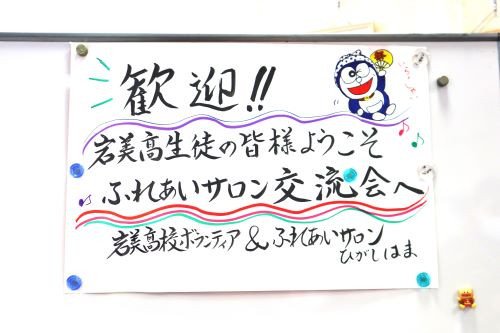 歓迎!!
岩美高生徒の皆様ようこそ
ふれあいサロン交流会へ
岩美高校ボランティア&ふれあいサロン
ひがしはま